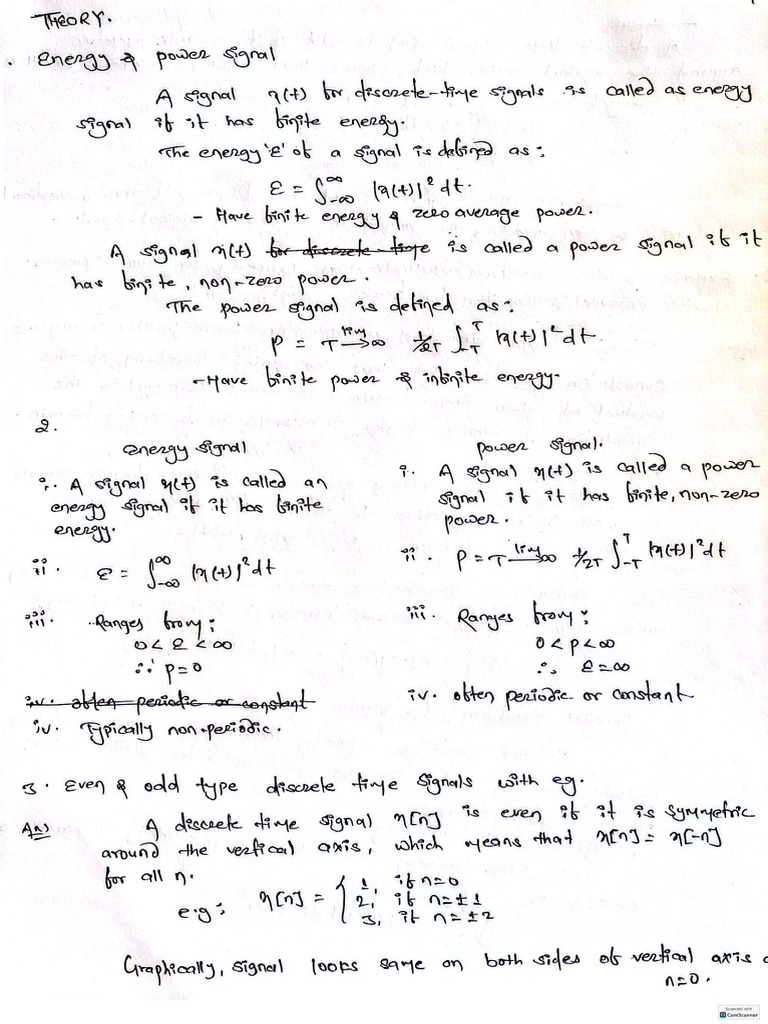 THEORY.
. Energy & power signal
A signal x(t) for discrete-time signals is called as energy
signal if it has finite energy.
The energy 'E' of a signal is defined as:
E = ∫_{-∞}^{∞} |x(t)|² dt.
- Have finite energy & zero average power.
A signal x(t) ~~for discrete time~~ is called a power signal if it
has finite, non-zero power.
The power signal is defined as:
P = T lim→∞ 1/2T ∫_{-T}^{T} |x(t)|² dt.
- Have finite power & infinite energy.
2.
Energy signal
i. A signal x(t) is called an
energy signal if it has finite
energy.
ii. E = ∫_{-∞}^{∞} |x(t)|² dt
iii. Ranges from:
0 < E < ∞
∵ P=0
~~iv. often periodic or constant~~
iv. Typically non-periodic.
power signal.
i. A signal x(t) is called a power
signal if it has finite, non-zero
power.
ii. P = T lim→∞ 1/2T ∫_{-T}^{T} |x(t)|² dt
iii. Ranges from:
0 < P < ∞
∴ E=∞
iv. often periodic or constant
3. Even & odd type discrete time signals with eg.
Ans) A discrete time signal x[n] is even if it is symmetric
around the vertical axis, which means that x[n] = x[-n]
for all n.
e.g: x[n] = { 1, if n=0
2, if n=±1
3, if n=±2
Graphically, signal loops same on both sides of vertical axis
n=0.
Scanned with
CamScanner